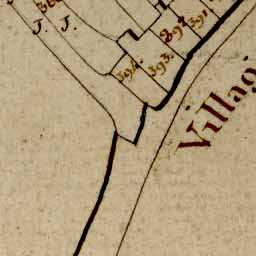 J. J.
394. 393. 392. 391.
Villag